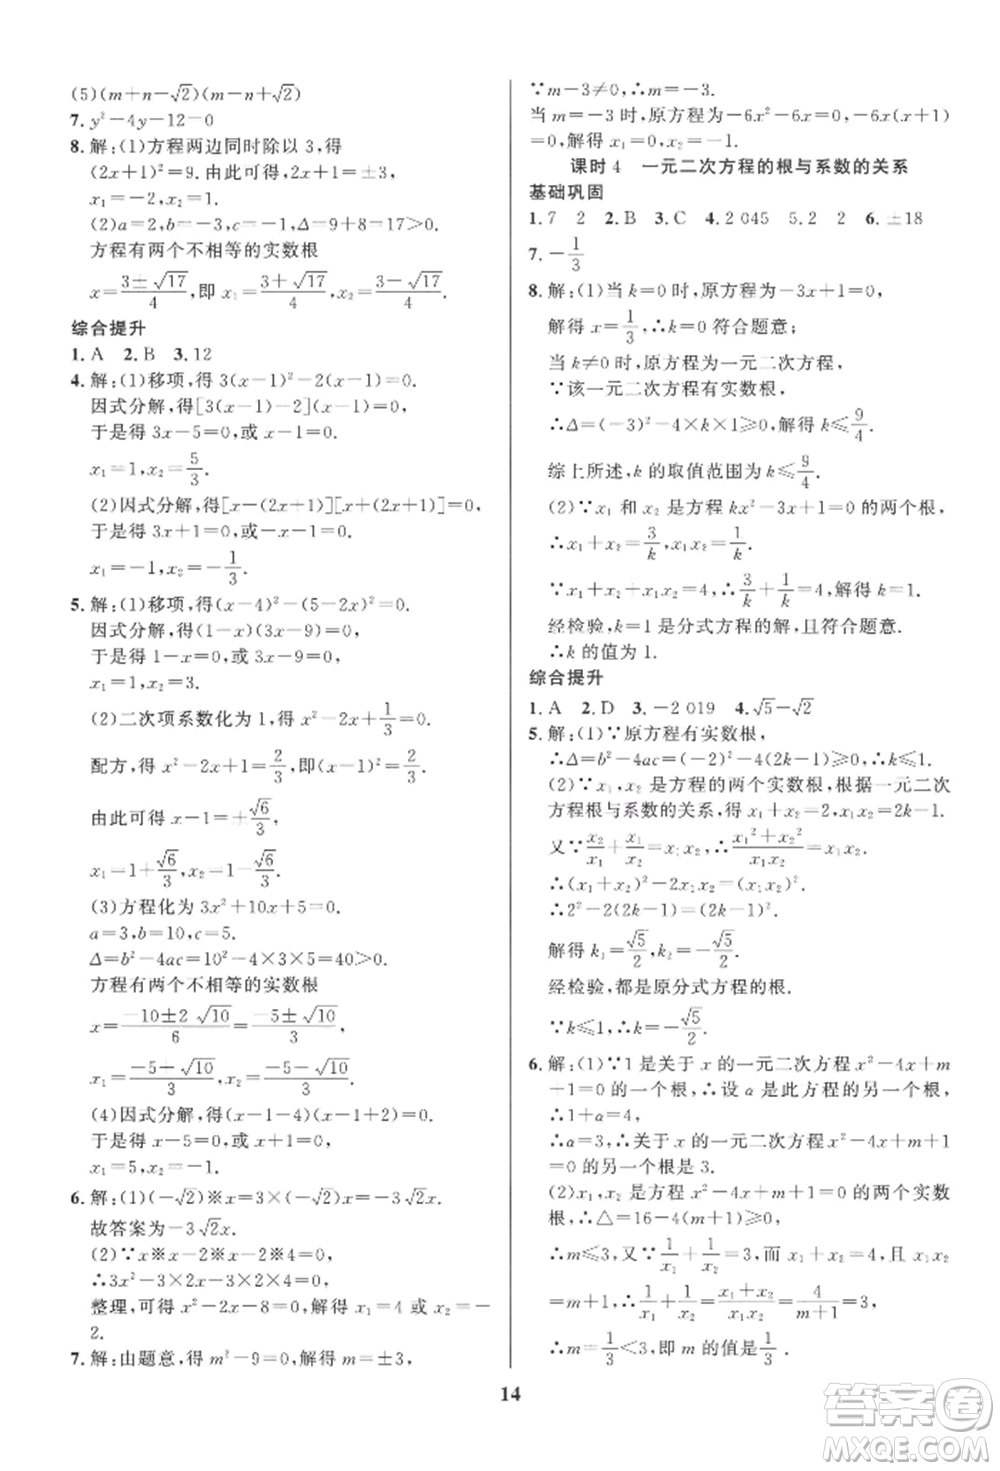 (5)(m+n-√2)(m-n+√2)
7. y²-4y-12=0
8. 解:(1)方程两边同时除以 3,得
(2x+1)²=9. 由此可得,2x+1=±3,
x₁=-2,x₂=1.
(2)a=2,b=-3,c=-1,Δ=9+8=17>0.
方程有两个不相等的实数根
x=(3±√17)/4,即 x₁=(3+√17)/4,x₂=(3-√17)/4.
综合提升
1. A 2. B 3. 12
4. 解:(1)移项,得 3(x-1)²-2(x-1)=0.
因式分解,得[3(x-1)-2](x-1)=0.
于是得 3x-5=0,或 x-1=0.
x₁=1,x₂=5/3.
(2)因式分解,得[x-(2x+1)][x+(2x+1)]=0.
于是得 3x+1=0,或-x-1=0.
x₁=-1,x₂=-1/3.
5. 解:(1)移项,得(x-4)²-(5-2x)²=0.
因式分解,得(1-x)(3x-9)=0.
于是得 1-x=0,或 3x-9=0.
x₁=1,x₂=3.
(2)二次项系数化为 1,得 x²-2x+1/3=0.
配方,得 x²-2x+1=2/3,即(x-1)²=2/3.
由此可得 x-1=±√6/3,
x₁=1+√6/3,x₂=1-√6/3.
(3)方程化为 3x²+10x+5=0.
a=3,b=10,c=5.
Δ=b²-4ac=10²-4×3×5=40>0.
方程有两个不相等的实数根
x=(-10±2√10)/6=(-5±√10)/3,
x₁=(-5+√10)/3,x₂=(-5-√10)/3.
(4)因式分解,得(x-1-4)(x-1+2)=0.
于是得 x-5=0,或 x+1=0.
x₁=5,x₂=-1.
6. 解:(1)(-√2)※x=3×(-√2)x=-3√2x.
故答案为-3√2x.
(2)∵x※x-2※x-2※4=0.
∴3x²-3×2x-3×2×4=0.
整理,可得 x²-2x-8=0,解得 x₁=4 或 x₂=-
2.
7. 解:由题意,得 m²-9=0,解得 m=±3,
∵m-3≠0,∴m=-3.
当 m=-3 时,原方程为-6x²-6x=0,-6x(x+1)
=0,解得 x₁=0,x₂=-1.
课时 4 一元二次方程的根与系数的关系
基础巩固
1. 7 2 2. B 3. C 4. 2 045 5. 2 2 6. ±18
7. -1/3
8. 解:(1)当 k=0 时,原方程为-3x+1=0,
解得 x=1/3,∴k=0 符合题意;
当 k≠0 时,原方程为一元二次方程,
∵该一元二次方程有实数根,
∴Δ=(-3)²-4×k×1≥0,解得 k≤9/4.
综上所述,k 的取值范围为 k≤9/4.
(2)∵x₁ 和 x₂ 是方程 kx²-3x+1=0 的两个根,
∴x₁+x₂=3/k,x₁x₂=1/k.
∵x₁+x₂+x₁x₂=4,∴3/k+1/k=4,解得 k=1.
经检验,k=1 是分式方程的解,且符合题意.
∴k 的值为 1.
综合提升
1. A 2. D 3. -2 019 4. √5-√2
5. 解:(1)∵原方程有实数根,
∴Δ=b²-4ac=(-2)²-4(2k-1)≥0,∴k≤1.
(2)∵x₁,x₂ 是方程的两个实数根,根据一元二次
方程根与系数的关系,得 x₁+x₂=2,x₁x₂=2k-1.
又∵x₂/x₁+x₁/x₂=x₁x₂,∴(x₁²+x₂²)/(x₁x₂)=x₁x₂.
∴(x₁+x₂)²-2x₁x₂=(x₁x₂)²,
∴2²-2(2k-1)=(2k-1)².
解得 k₁=√5/2,k₂=-√5/2.
经检验,都是原分式方程的根.
∵k≤1,∴k=-√5/2.
6. 解:(1)∵1 是关于 x 的一元二次方程 x²-4x+m
+1=0 的一个根,∴设 a 是此方程的另一个根,
∴1+a=4,
∴a=3,∴关于 x 的一元二次方程 x²-4x+m+1
=0 的另一个根是 3.
(2)∵x₁,x₂ 是方程 x²-4x+m+1=0 的两个实数
根,∴△=16-4(m+1)≥0,
∴m≤3,又∵1/x₁+1/x₂=3,而 x₁+x₂=4,且 x₁x₂
=m+1,∴1/x₁+1/x₂=(x₁+x₂)/(x₁x₂)=4/(m+1)=3,
∴m=1/3<3,即 m 的值是1/3.
14
答案圈
MXQE.COM